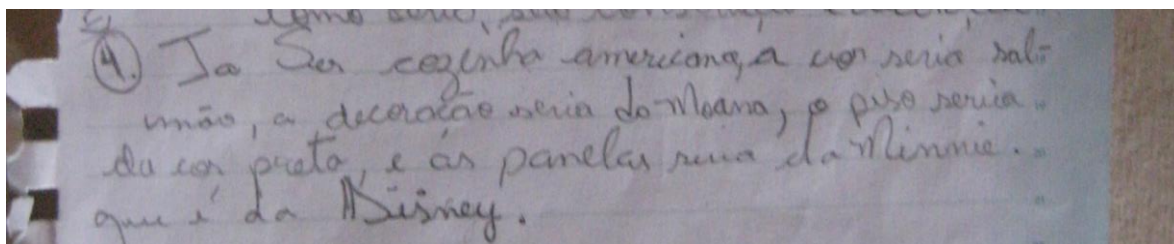 como seria, sua
4. Ia Ser cozinha americana, a cor seria sal-
mão, a decoração seria do Moana, o piso seria
da cor preto, e as panelas seria da Minnie.
que é da Disney.